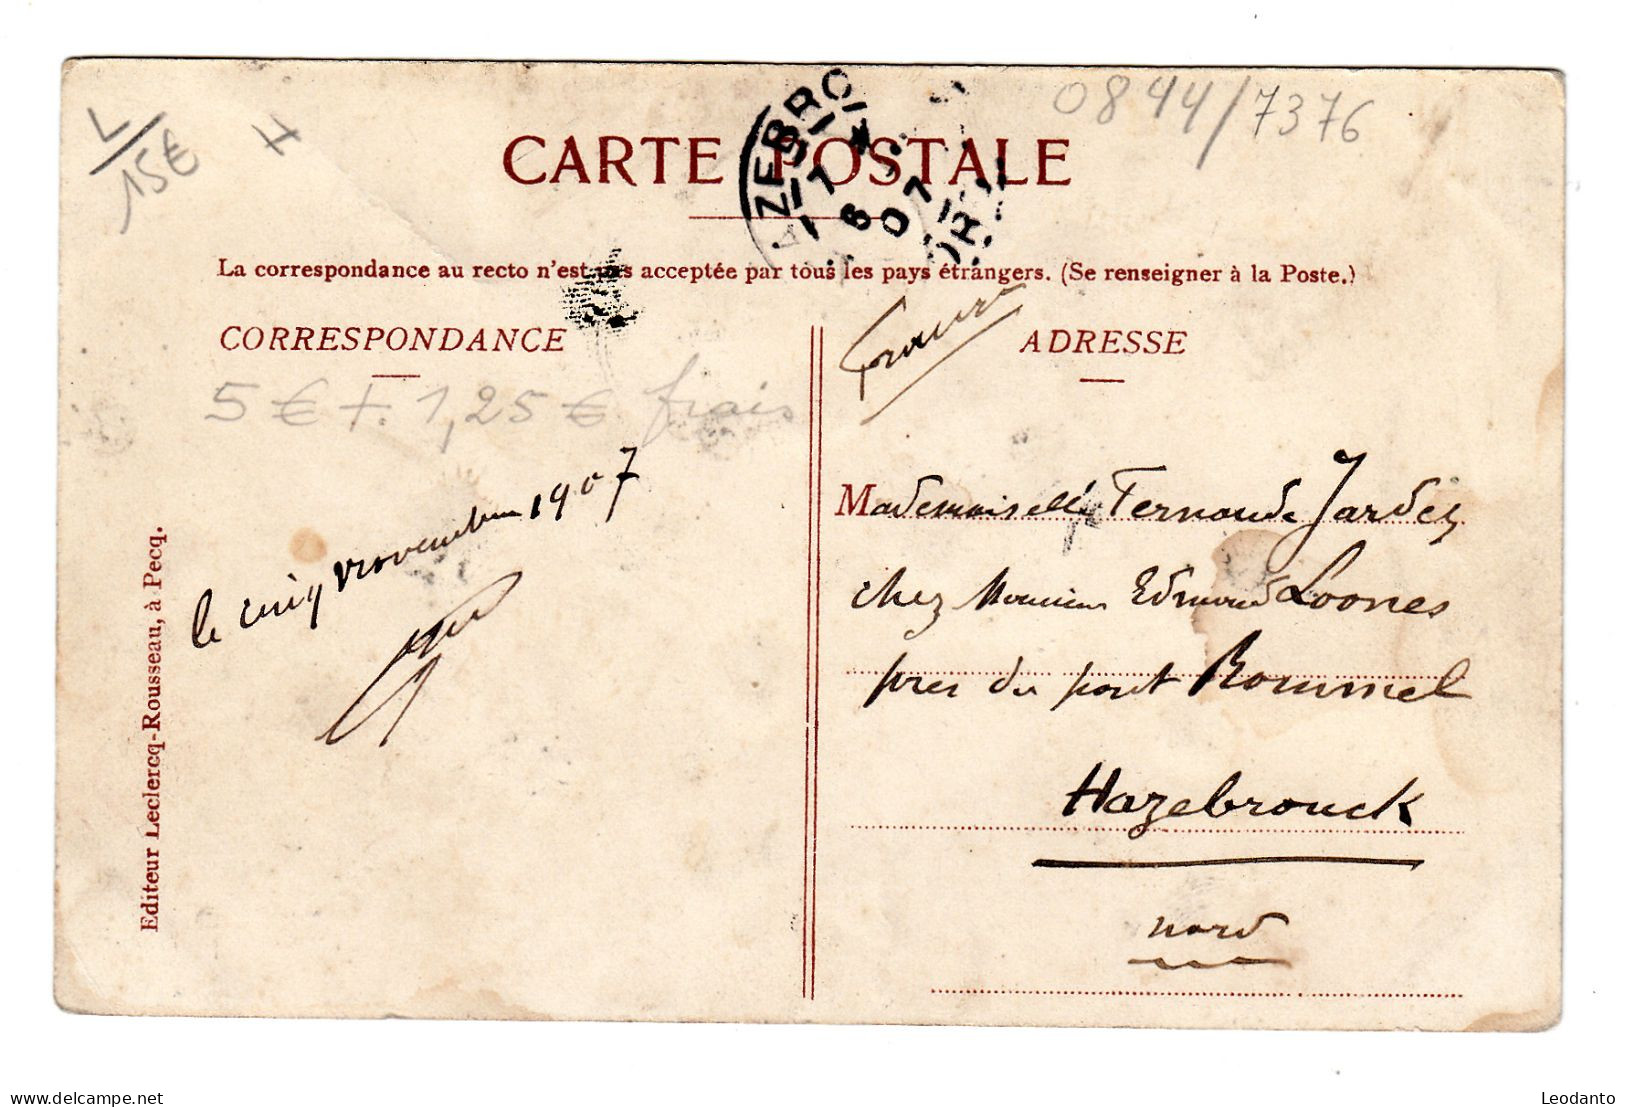 L/15€
H
0844/7376
CARTE POSTALE
AZEBRO
7
8
07
La correspondance au recto n'est pas acceptée par tous les pays étrangers. (Se renseigner à la Poste.)
CORRESPONDANCE
ADRESSE
5€ + 1,25€ frais
le cinq novembre 1907
Mademoiselle Fernande Jardez
chez Monsieur Edmond Loones
près du pont Rommel
Hazebrouck
nord
Editeur Leclercq-Rousseau, à Pecq.
www.delcampe.net
Leodanto